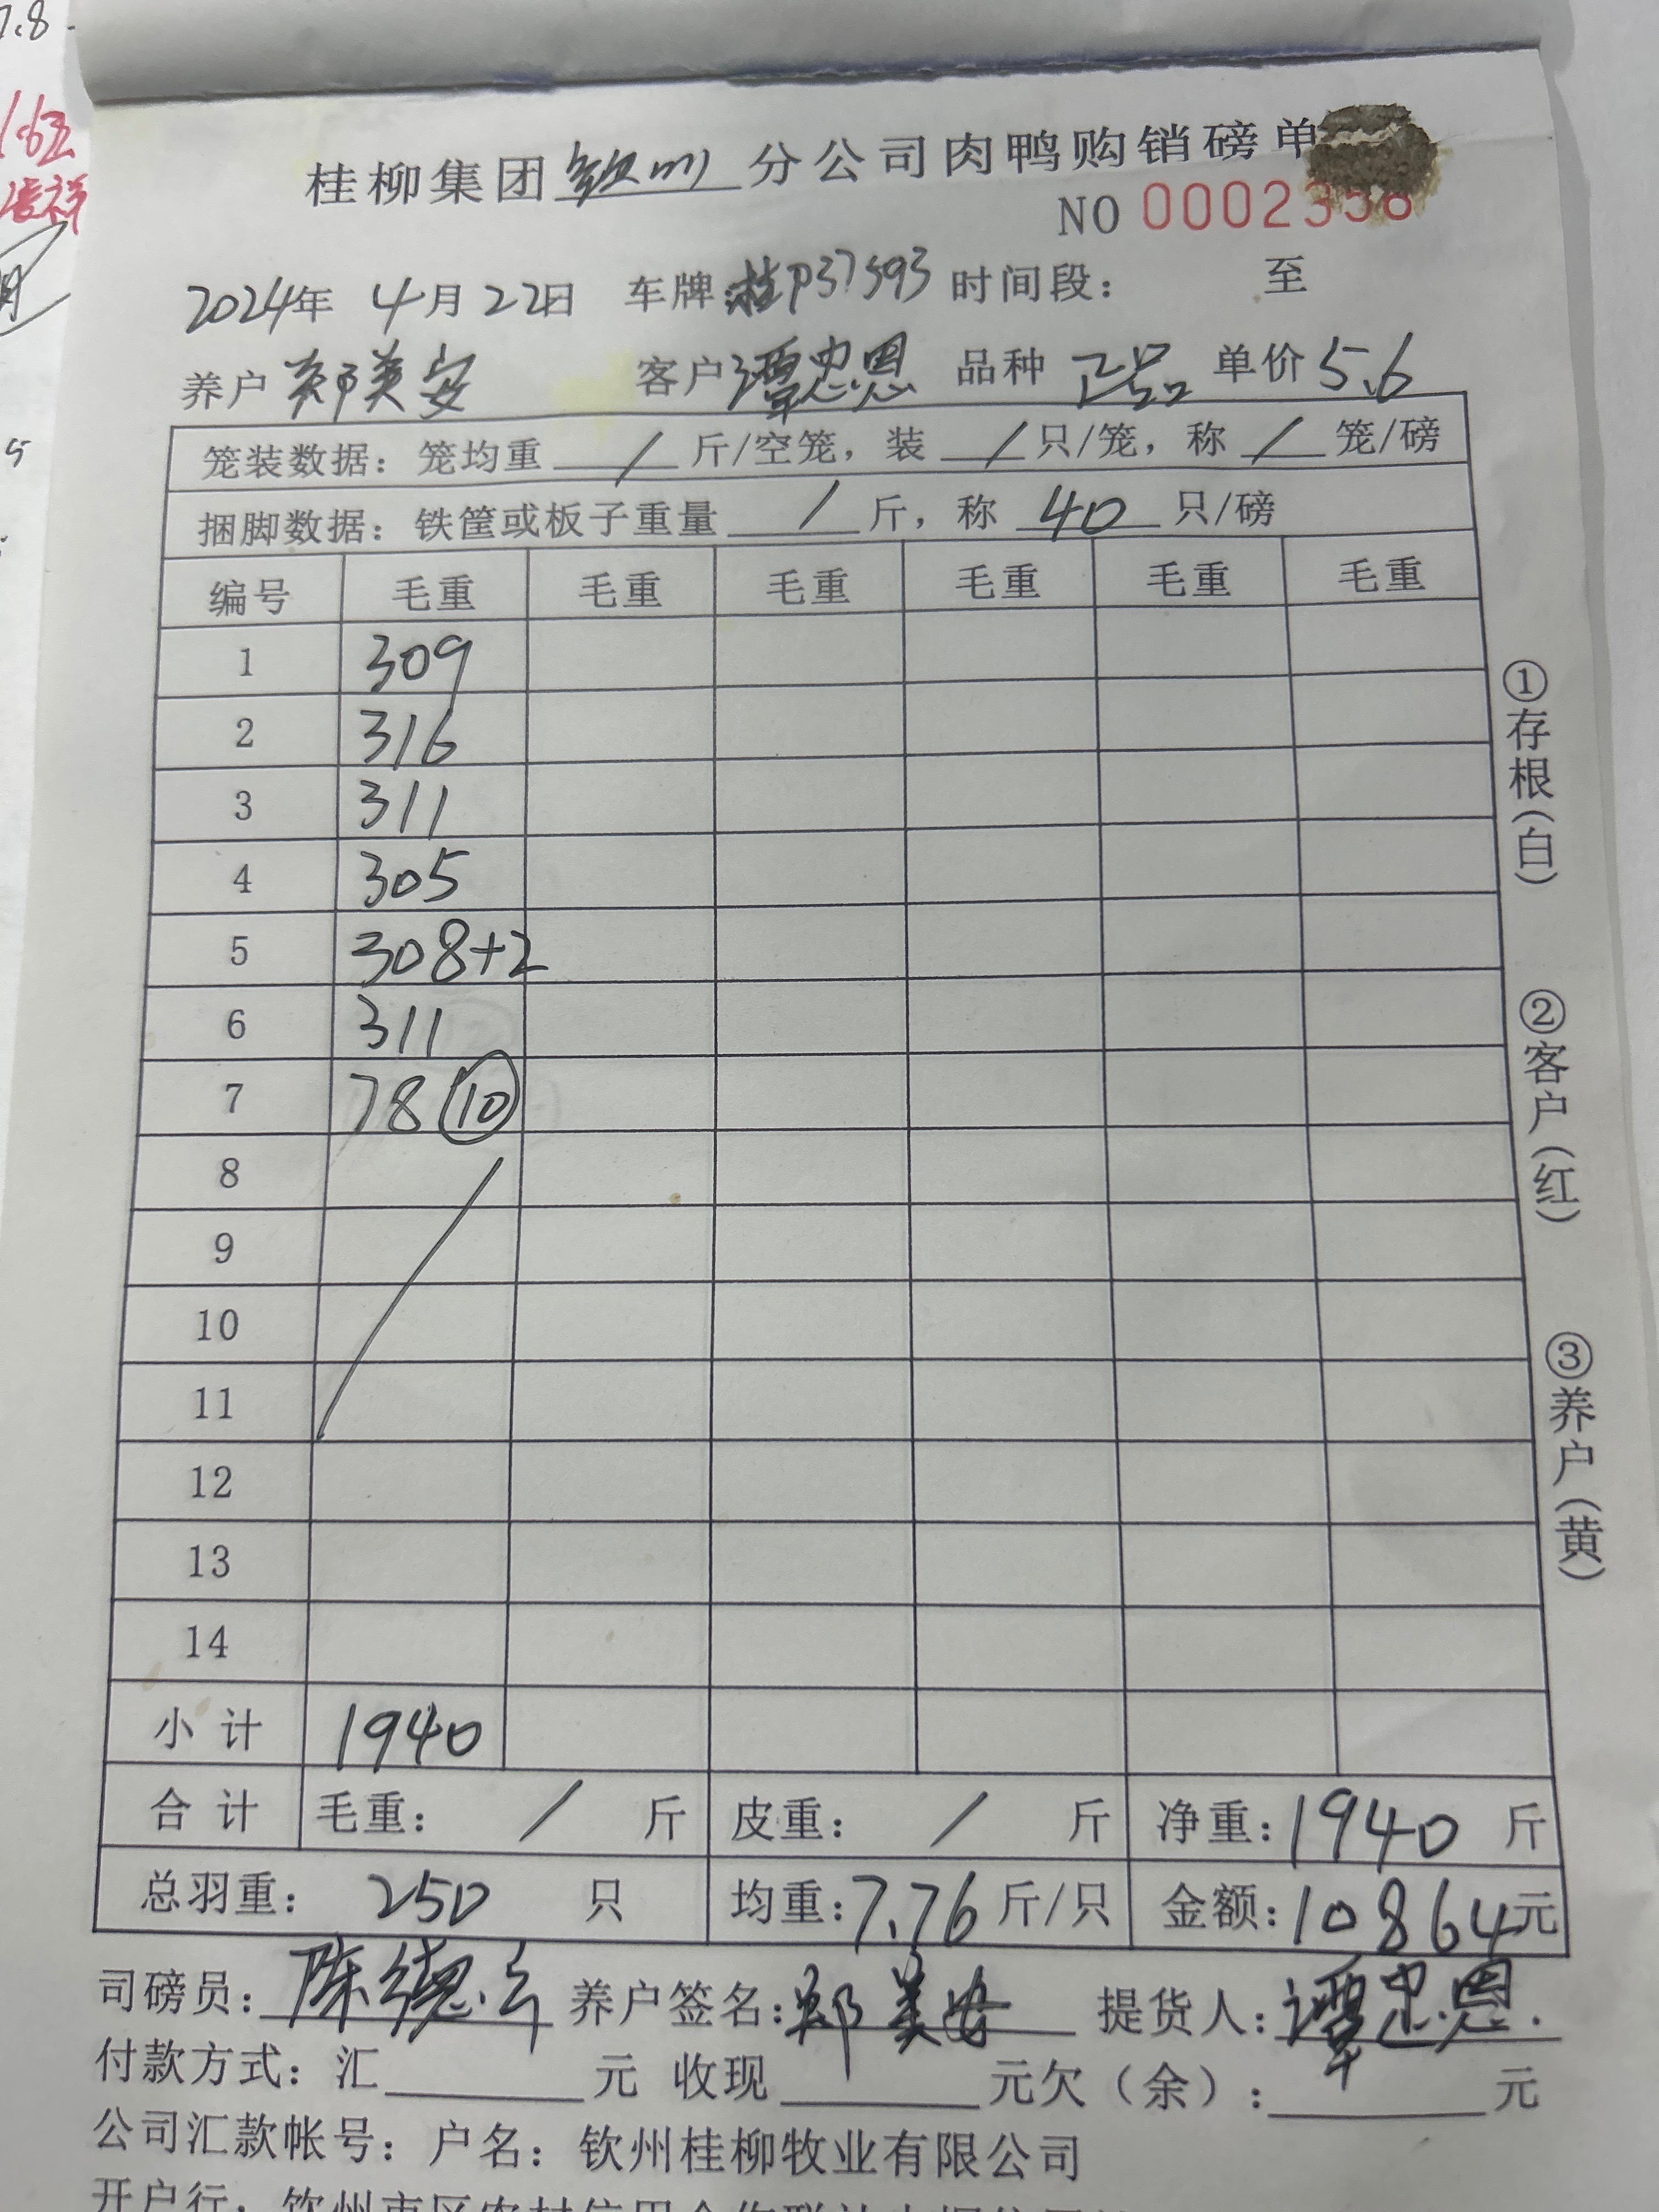 桂柳集团钦州分公司肉鸭购销磅单
NO 0002358
2024年 4月22日 车牌:桂P37593 时间段: 至
养户 郑美安 客户 谭忠恩 品种 正品 单价5.6
笼装数据: 笼均重 / 斤/空笼, 装 / 只/笼, 称 / 笼/磅
捆脚数据: 铁筐或板子重量 / 斤, 称 40 只/磅
编号 毛重 毛重 毛重 毛重 毛重 毛重
1 309
2 316
3 311
4 305
5 308+2
6 311
7 78 ⑩
8
9
10
11
12
13
14
小计 1940
合计 毛重: / 斤 皮重: / 斤 净重:1940 斤
总羽重: 250 只 均重:7.76 斤/只 金额:10864元
司磅员:陈德云 养户签名:郑美安 提货人:谭忠恩.
付款方式: 汇 元 收现 元欠(余): 元
公司汇款帐号: 户名: 钦州桂柳牧业有限公司
开户行: 钦州市区农村信用合作联社
①存根(白)
②客户(红)
③养户(黄)
7.8